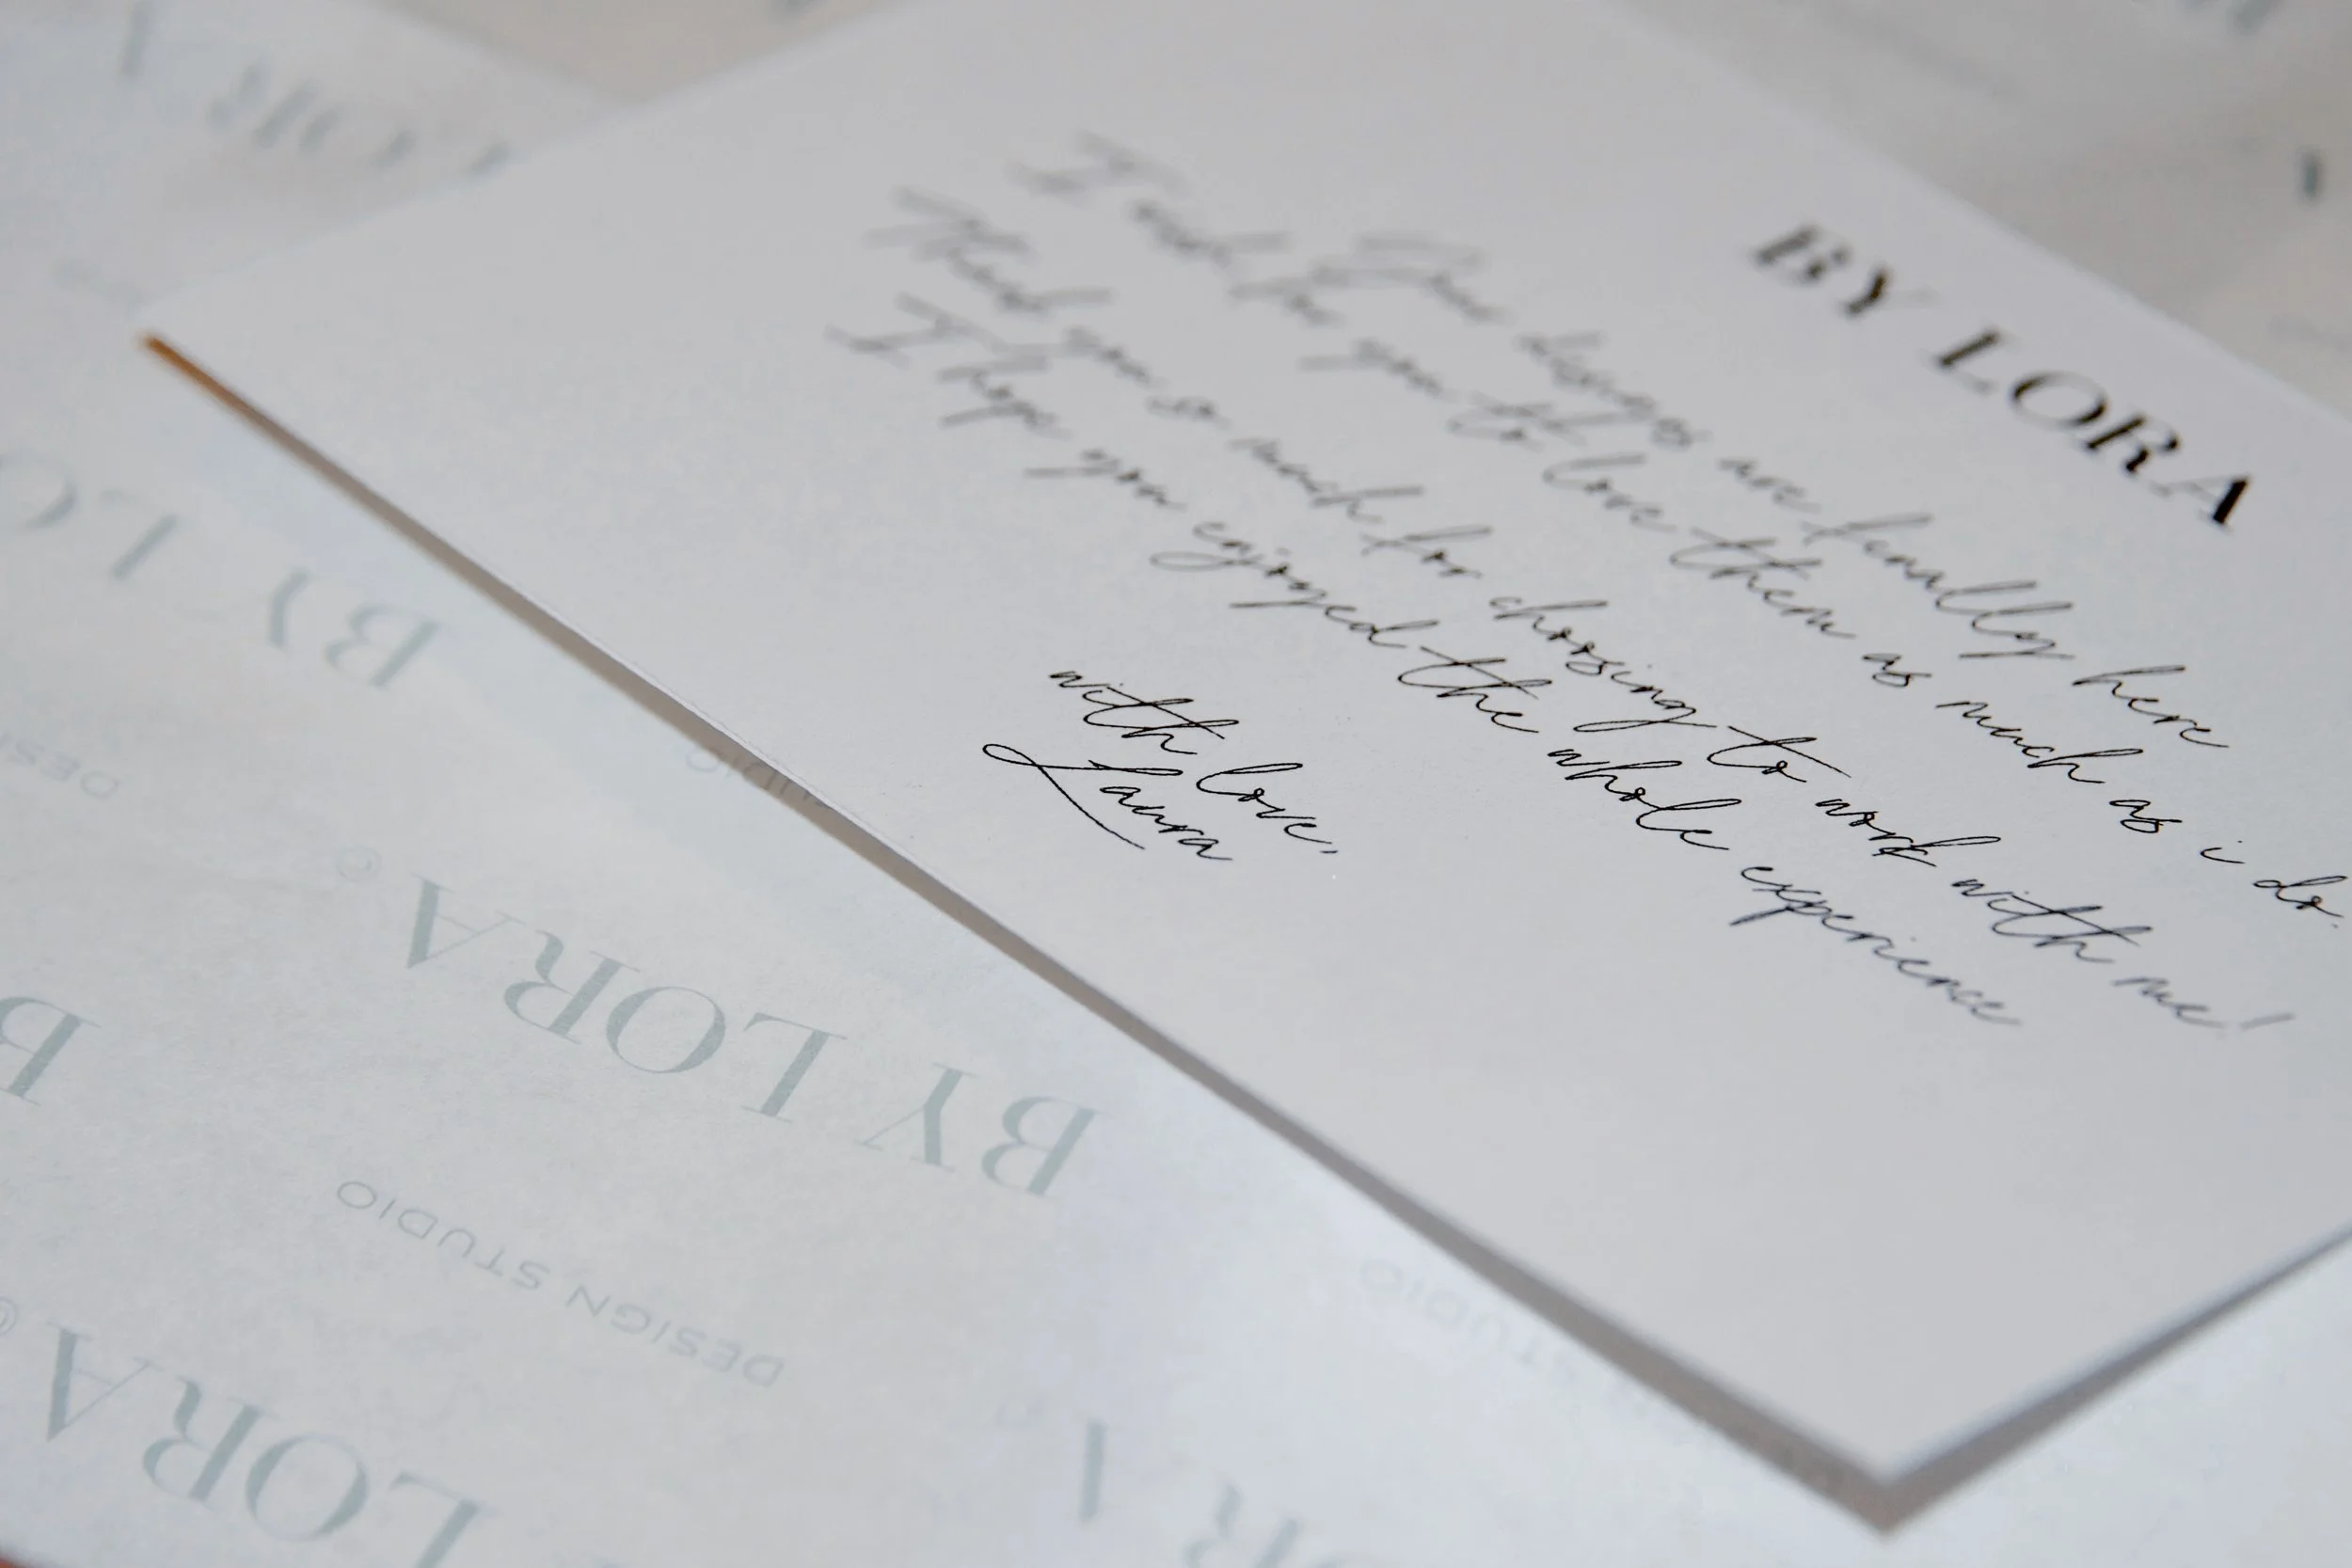 BY LORA
Your designs are finally here
I wait for you to love them as much as i do.
Thank you so much for choosing to work with me!
I hope you enjoyed the whole experience
with love,
Laura
LORA
BY LO
DESI
STUDIO
BY LORA ©
DESIGN STUDIO
B
LORA ®
STUDIO